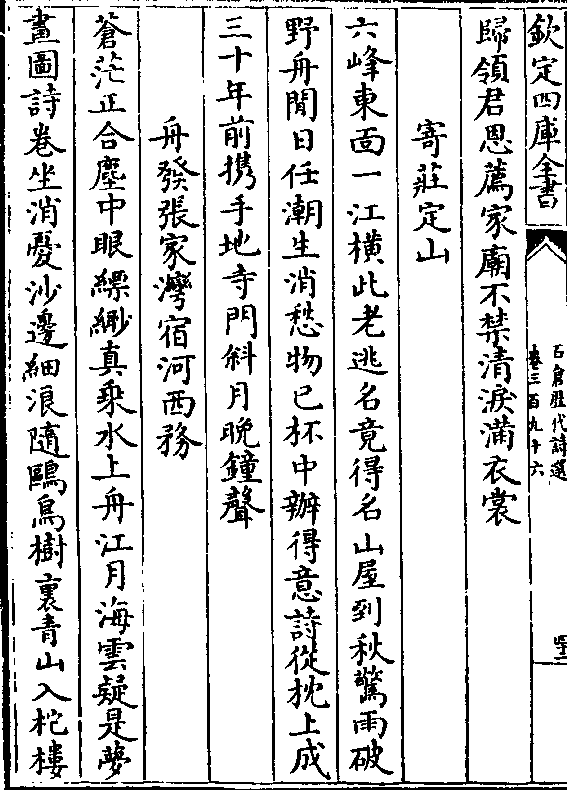 欽定四庫全書
石倉歷代詩選
卷三百九十六
歸領君恩薦家廟不禁清淚滿衣裳
寄莊定山
六峰東面一江橫此老逃名竟得名山屋到秋驚雨破
野舟閒日任潮生消愁物已杯中辦得意詩從枕上成
三十年前攜手地寺門斜月晚鐘聲
舟發張家灣宿河西務
蒼茫正合塵中眼縹緲真乘水上舟江月海雲疑是夢
畫圖詩卷坐消憂沙邊細浪隨鷗鳥樹裏青山入柁樓